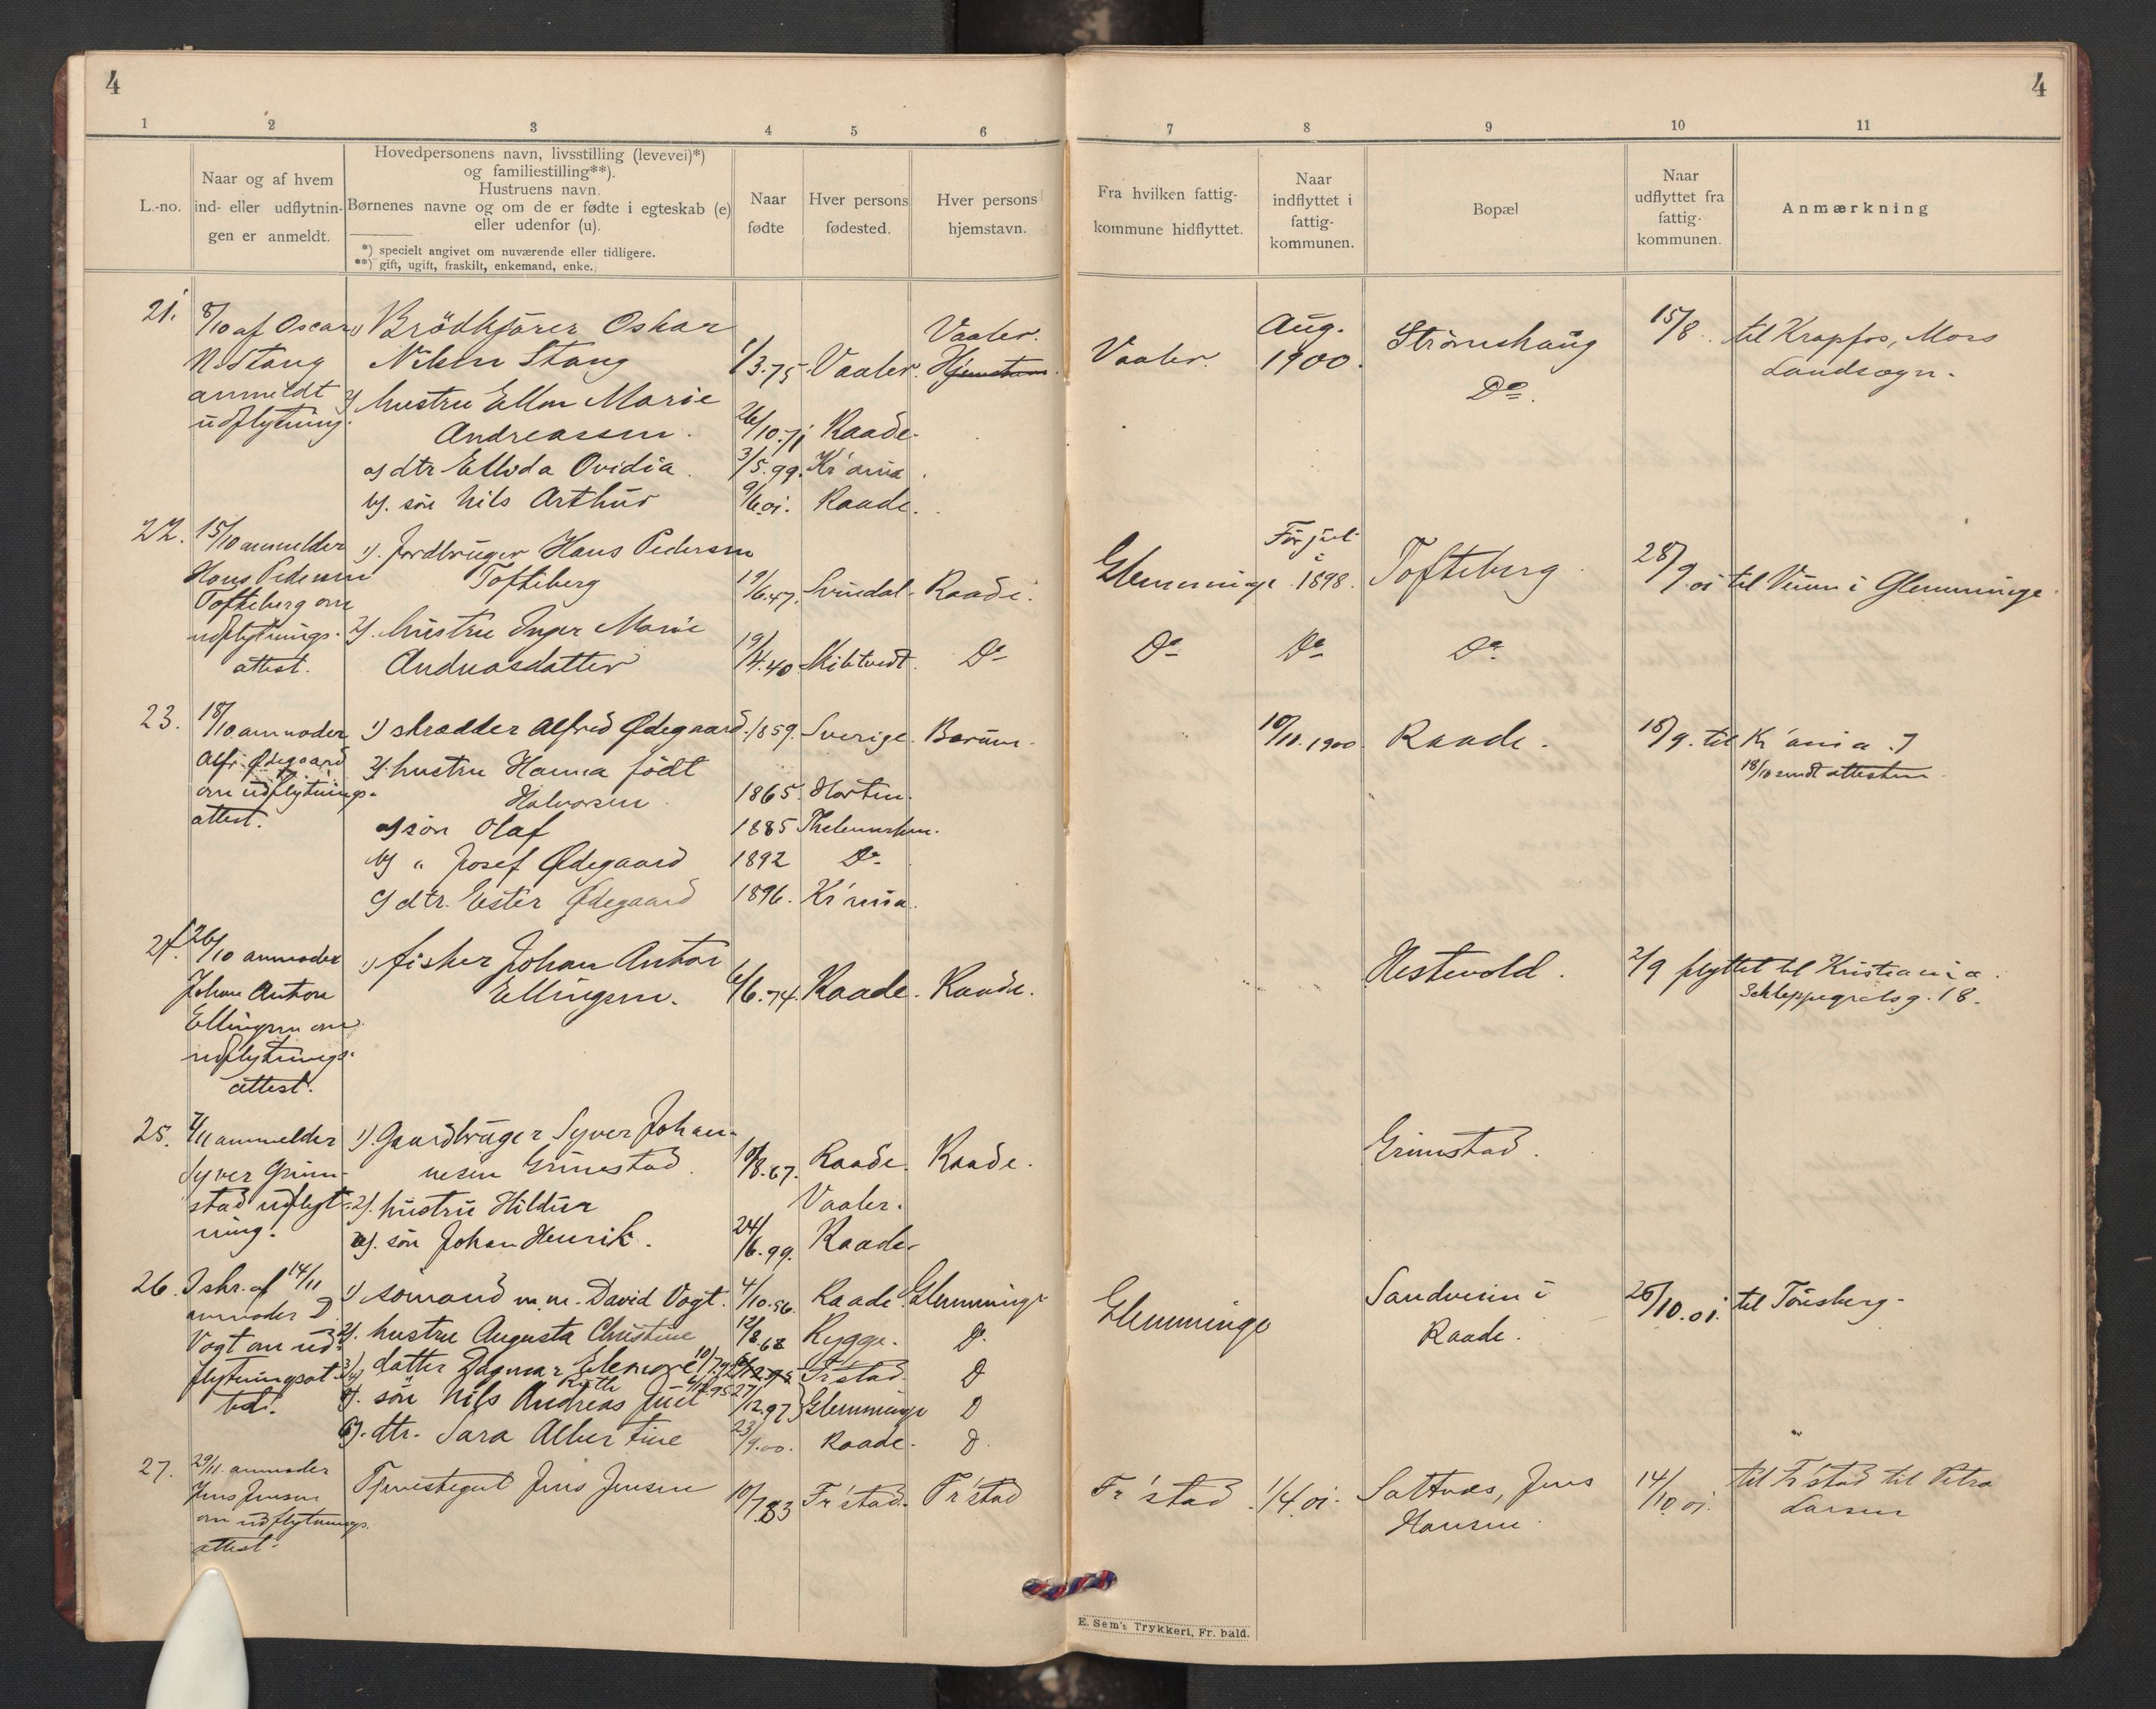 4
4
1 2 3 4 5 6 7 8 9 10 11
L.-no.
Naar og af hvem
ind- eller udflytnin-
gen er anmeldt.
Hovedpersonens navn, livsstilling (levevei)*)
og familiestilling**).
Hustruens navn.
Børnenes navne og om de er fødte i egteskab (e)
eller udenfor (u).
*) specielt angivet om nuværende eller tidligere.
**) gift, ugift, fraskilt, enkemand, enke.
Naar
fødte
Hver persons
fødested.
Hver persons
hjemstavn.
Fra hvilken fattig-
kommune hidflyttet.
Naar
indflyttet i
fattig-
kommunen.
Bopæl
Naar
udflyttet fra
fattig-
kommunen.
Anmærkning
21.
8/10 af Oscar
N. Stang
anmeldt
udflytning.
1) Brödkjörer Oskar
Nilsen Stang 1/3.75. Vaaler. Vaaler. Hjemstavn.
2) hustru Ellen Marie
Andreassen. 26/10.71 Raade.
a) dtr Ellida Ovidia. 3/5.99. Kr'ania.
b). sön Nils Arthur 9/6.01. Raade.
Vaaler. Aug. 1900. Strömshaug
Do.
15/8. til Krapfos, Moss
Landsogn.
22.
15/10 anmelder
Hans Pedersen
Tofteberg om
udflytnings-
attest.
1). Jordbruger Hans Pedersen
Tofteberg 19/6.47. Svindal. Raade.
2). hustru Inger Marie
Andreasdatter 19/4.40 Skibtvedt. Do
Glemminge För jul
i 1898. Tofteberg. 28/9.01 til Veum i Glemminge
Do Do Do
23.
18/10 anmoder
Alfr. Ødegaard
om udflytnings-
attest.
1) skrædder Alfred Ødegaard. 1859. Sverige. Bærum.
2). hustru Hanna födt
Halvorsen. 1865. Horten.
a) sön Olaf 1885 Thelemarken.
b) " Josef Ødegaard 1892 Do.
c) dtr. Ester Ødegaard 1896. Kr'ania.
10/11.1900. Raade. 18/9. til Kr'ania.
18/10 sendt attesten.
24.
26/10 anmoder
Johan Anton
Ellingsen om
udflytnings-
attest.
1) fisker Johan Anton
Ellingsen. 6/6.74. Raade. Raade.
Hestevold. 2/9 flyttet til Kristiania.
Schleppegrelsg. 18.
25.
4/11 anmelder
Syver Grim-
stad udflyt-
ning.
1). Gaardbruger Syver Johan-
nesen Grimestad. 10/8.67. Raade. Raade.
2). hustru Hildur Vaaler.
a). sön Johan Henrik. 24/6.99. Raade.
Grimstad.
26.
I skr. af 14/11
anmoder D.
Vogt om ud-
flytningsat-
test.
1) sömand m.m. David Vogt. 4/10.56. Raade. Glemminge
2). hustru Augusta Christine 12/8.68 Rygge. D.
3) datter Dagmar Elenore 10/7.92 6/12.95 Fr'stad. D
Ruth 6/12.95
sön Nils Andreas Juel 27/12.97 Glemminge D
6). dtr. Sara Albertine 23/9.00. Raade. D.
Glemminge Sandveien i
Raade. 25/10.01. til Tönsberg.
27.
29/11. anmoder
Jens Jensen
om udflytnings-
attest.
Tjenestegut Jens Jensen 10/7.83 Fr'stad. Fr'stad
Fr'stad. 1/4.01. Saltnes, Jens
Hansen. 14/10.01. til Fr'stad til Petra
Larsen
E. Sem's Trykkeri, Fr. hald.